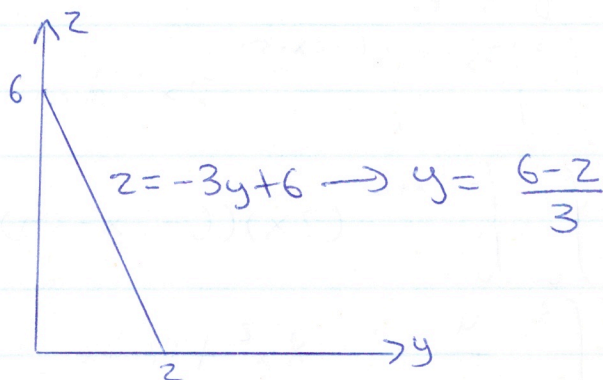 z
6
z = -3y+6 → y = (6-z)/3
y
2